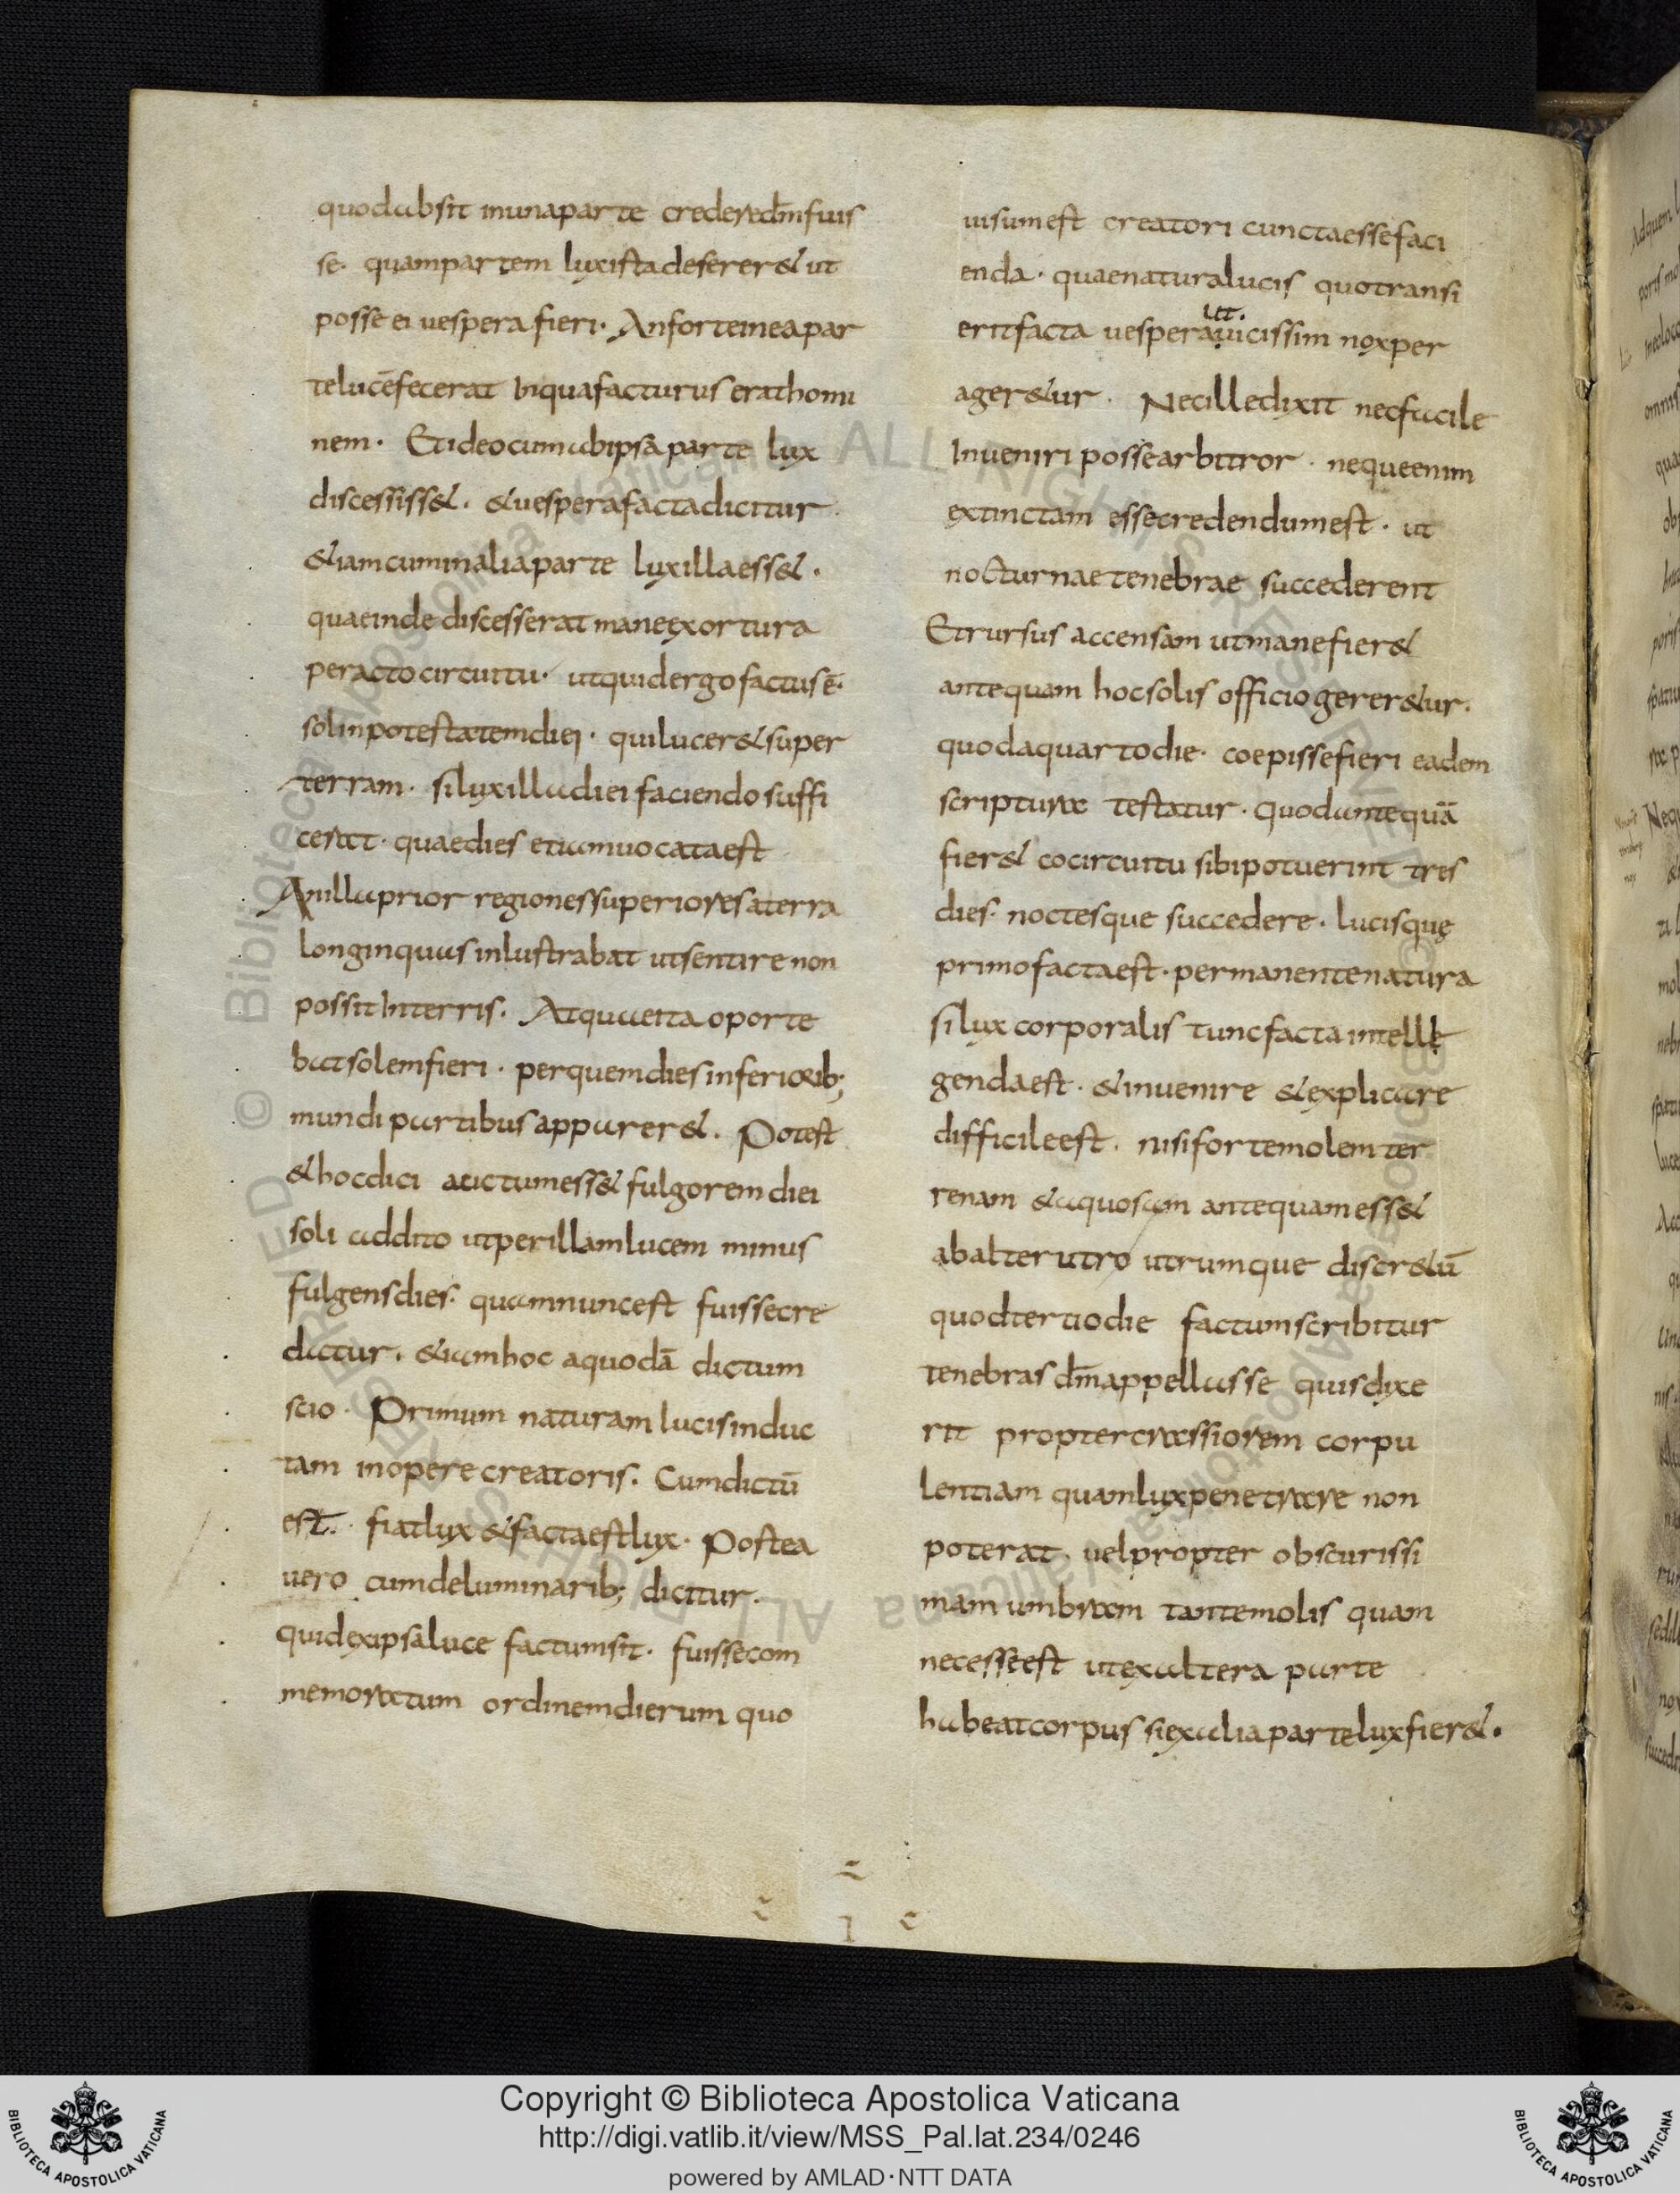 quod absit in una parte credere dm̄ fuis
se· quam partem lux ista deserer& ut
posse ei uespera fieri· An forte in ea par
te lucē fecerat in qua facturus erat homi
nem· Et ideo cum ab ipsa parte lux
discessiss&· & uespera facta dicitur
&iam cum in alia parte lux illa ess&·
quae inde discesserat mane exortura
peracto circuitu· ut quid ergo factus ē·
sol in potestatem diei· qui lucer& super
terram· si lux illa diei faciendo suffi
cerat· quae dies etiam uocata est
An illa prior regiones superiores a terra
longinquas inlustrabat ut sentire non
possit in terris· Atqua eita oporte
bat solem fieri· per quem dies inferiorib;
mundi partibus apparer&· Potest
& hoc dici auctum ess& fulgorem diei
soli addito ut per illam lucem minus
fulgens dies· quam nunc est fuisse cre
datur· &iam hoc a quodā dictum
scio· Primum naturam lucis induc
tam in opere creatoris· Cum dictū
est· fiat lux & facta est lux· Postea
uero cum de luminarib; dicitur·
quid ex ipsa luce factum sit· fuisse com
memoratum ordinem dierum quo
uisum est creatori cuncta esse faci
enda· quae natura lucis quo transi
erit facta uespera ut uicissim nox per
ager&ur· Nec ille dixit nec facile
inueniri posse arbitror· neque enim
extinctam esse credendum est· ut
nocturnae tenebrae succederent
Et rursus accensam ut mane fier&
antequam hoc solis officio gerer&ur·
quod a quarto die· coepisse fieri eadem
scriptura testatur· quod antequā
fier& cocircuitu sibi potuerint tres
dies· noctesque succedere· lucis quę
primo facta est· permanente natura
si lux corporalis tunc facta intellę
genda est· & inuenire & explicare
difficile est· nisi forte molem ter
renam & aquosam antequam ess&
ab alterutro utrumque discr&ū
quod tertio die factum scribitur
tenebras dm̄ appellasse quis dixe
rit propter crassiorem corpu
lentiam quam lux penetrare non
poterat· uel propter obscurissi
mam umbram tante molis quam
necesse est ut ex altera parte
habeat corpus si ex alia parte lux fier&·
© Biblioteca Apostolica Vaticana ALL RIGHTS RESERVED
Copyright © Biblioteca Apostolica Vaticana
http://digi.vatlib.it/view/MSS_Pal.lat.234/0246
powered by AMLAD·NTT DATA
BIBLIOTECA APOSTOLICA VATICANA
BIBLIOTECA APOSTOLICA VATICANA